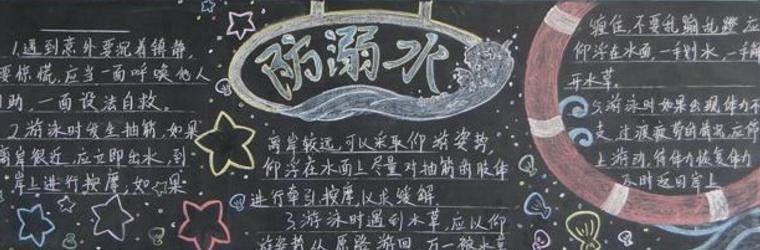 防溺水
1.遇到意外要沉着镇静,
要惊慌,应当一面呼唤他人
助,一面设法自救。
2.游泳时发生抽筋,如果
离岸很近,应立即出水,到
岸上进行按摩,如果
离岸较远,可以采取仰游姿势
仰浮在水面上尽量对抽筋的肢体
进行牵引按摩,以求缓解
3.游泳时遇到水草,应以仰
游姿势从原路游回,万一被水草
缠住,不要乱蹦乱蹬,应
仰浮在水面,一手划水,一手解
开水草。
5.游泳时如果出现体力不
支、过渡疲劳的情况,应停
上游动,待体力恢复体力
及时返回岸上